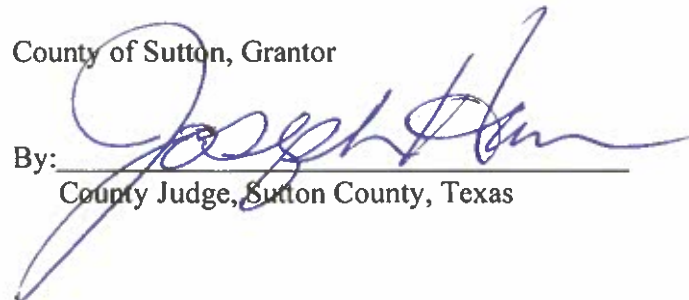 County of Sutton, Grantor
Joseph
By:
County Judge, Sutton County, Texas